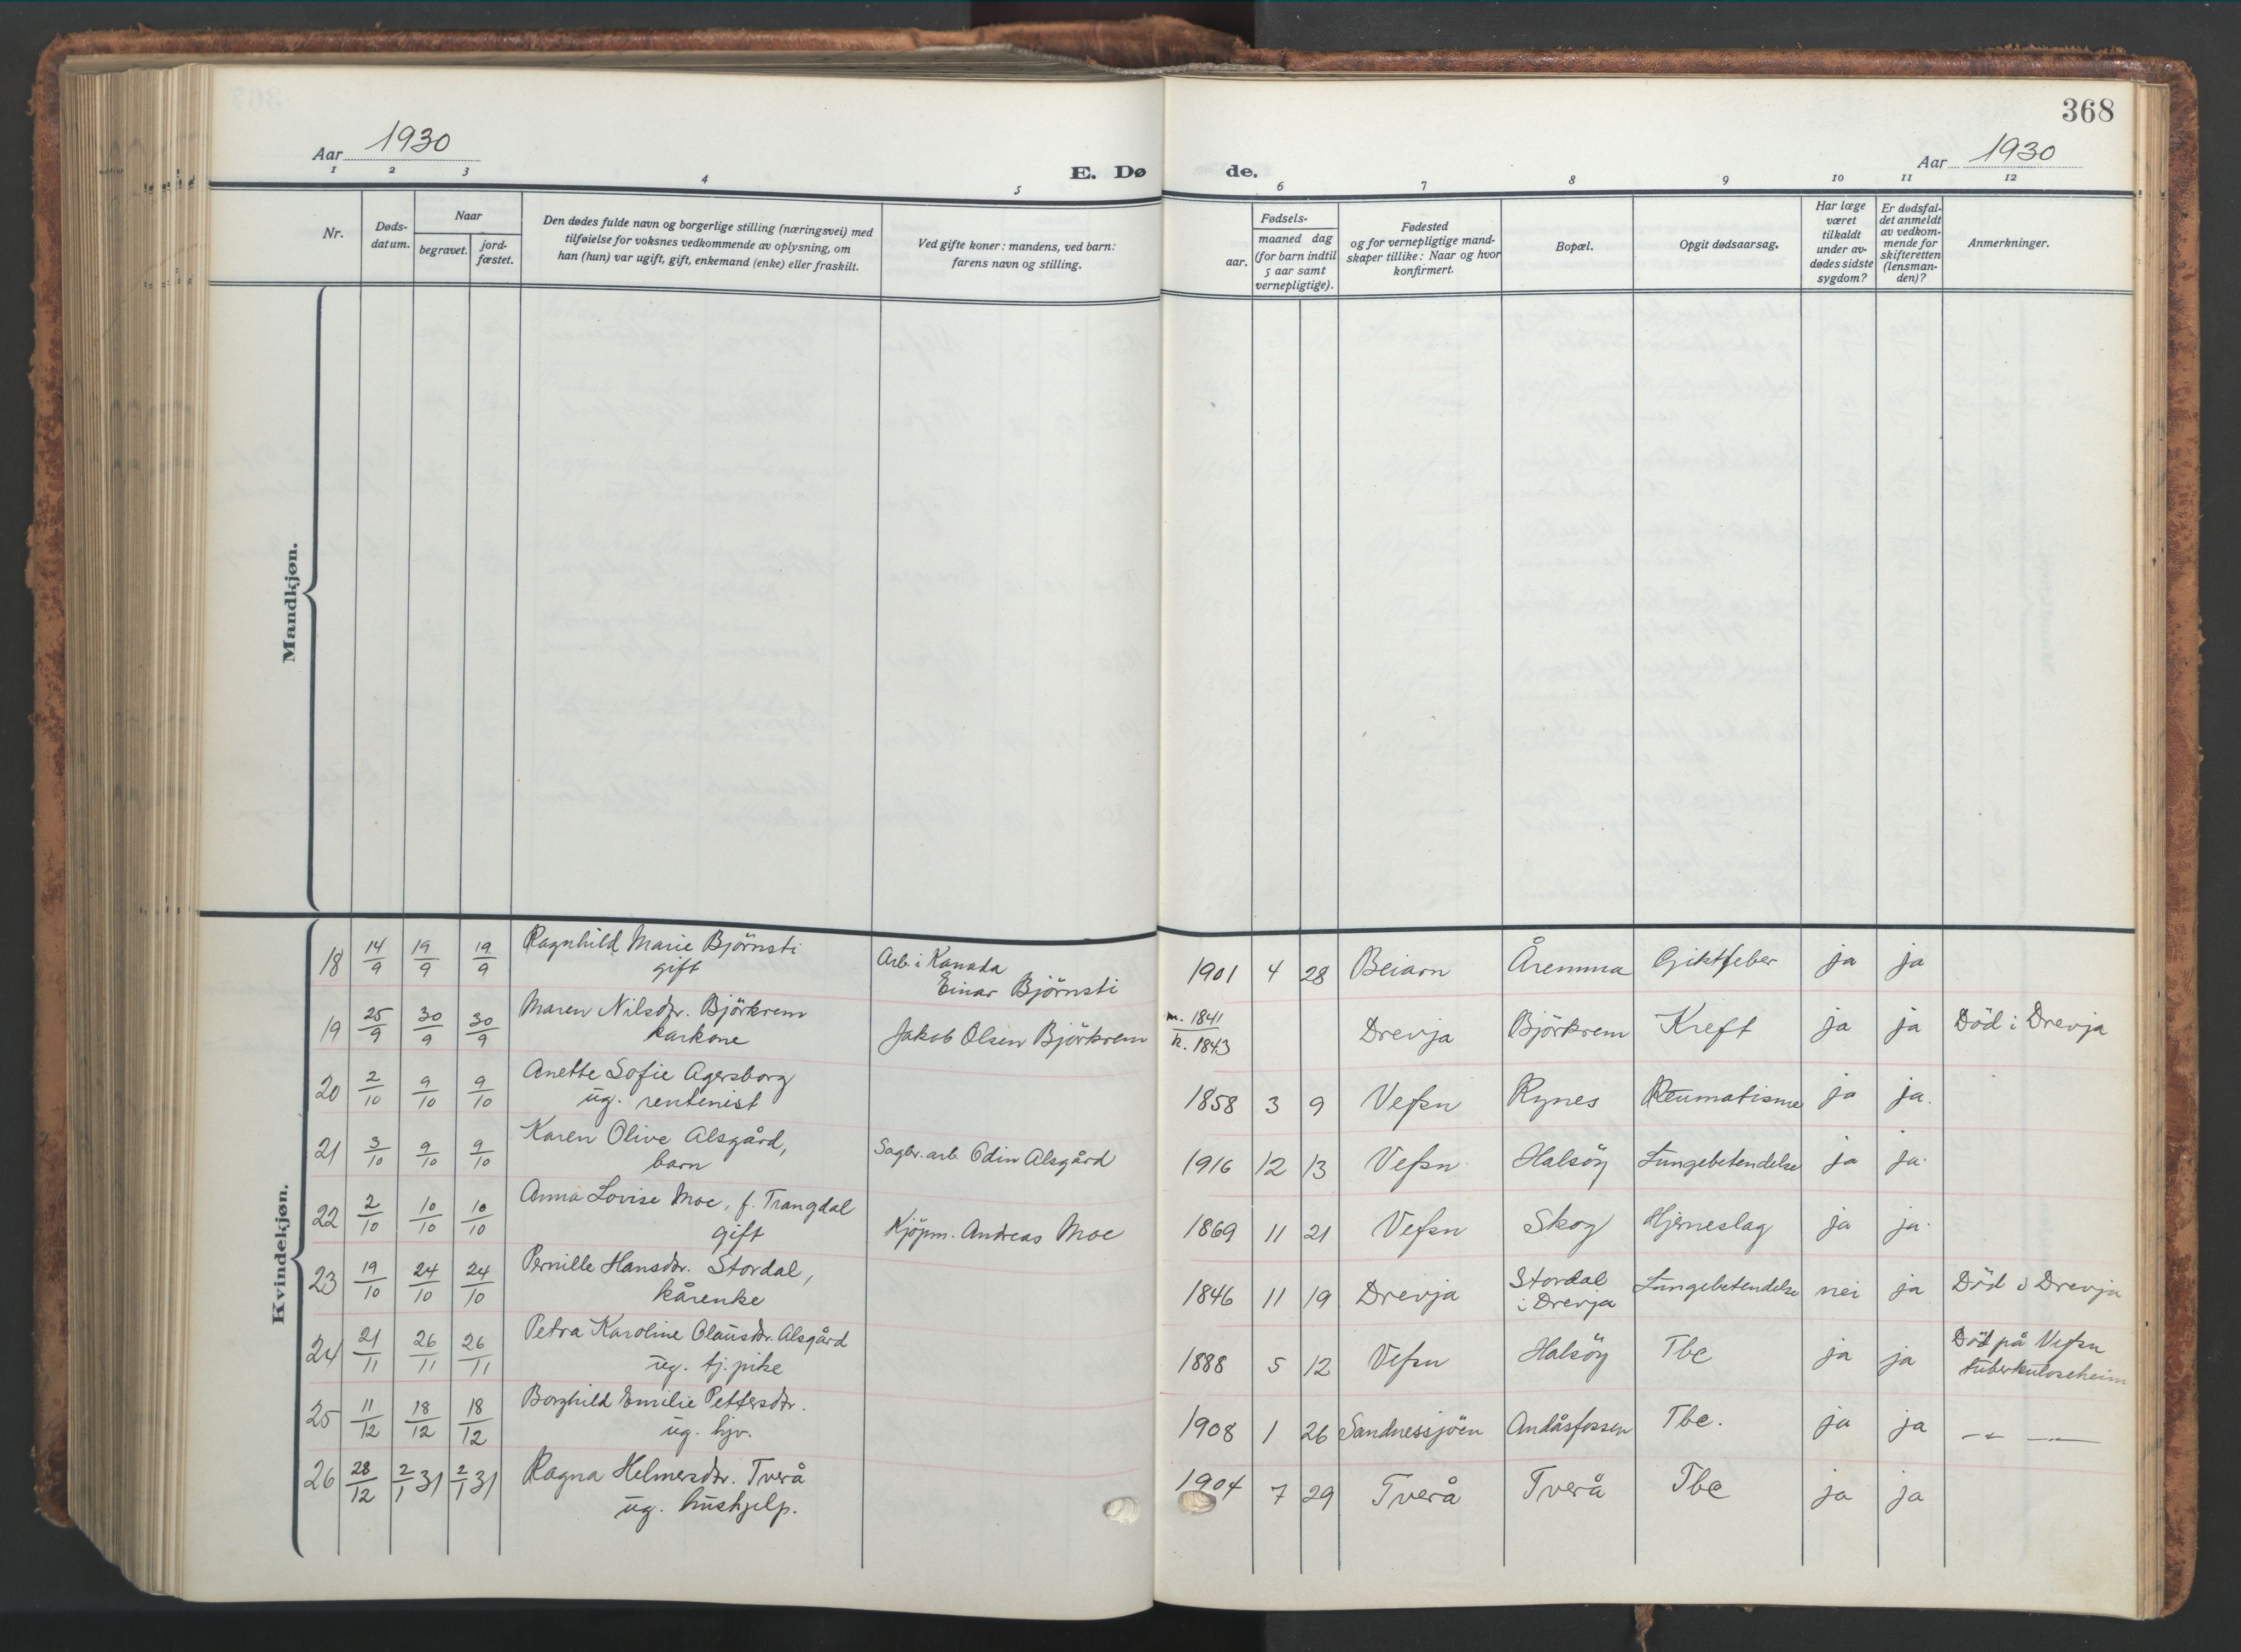 368
Aar 1930
E. Dø de.
Aar 1930
1 2 3 4 5 6 7 8 9 10 11 12
Nr.
Døds-
datum.
Naar
begravet.
jord-
fæstet.
Den dødes fulde navn og borgerlige stilling (næringsvei) med
tilføielse for voksnes vedkommende av oplysning, om
han (hun) var ugift, gift, enkemand (enke) eller fraskilt.
Ved gifte koner: mandens, ved barn:
farens navn og stilling.
Fødsels-
aar.
maaned dag
(for barn indtil
5 aar samt
vernepligtige).
Fødested
og for vernepligtige mand-
skaper tillike: Naar og hvor
konfirmert.
Bopæl.
Opgit dødsaarsag.
Har læge
været
tilkaldt
under av-
dødes sidste
sygdom?
Er dødsfal-
det anmeldt
av vedkom-
mende for
skifteretten
(lensman-
den)?
Anmerkninger.
Mandkjøn.
Kvindekjøn.
18 14/9 19/9 19/9 Ragnhild Marie Björnsti
gift
Arb. i Kanada
Einar Björnsti
1901 4 28 Beiarn Åremma Giktfeber ja ja
19 25/9 30/9 30/9 Maren Nilsdtr. Björkrem
karkone
Jakob Olsen Björkrem
m. 1841
n. 1843
Drevja Björkrem Kreft ja ja Död i Drevja
20 2/10 9/10 9/10 Anette Sofie Agersborg
ug. rentenist
1858 3 9 Vefsn Rynes Reumatisme ja ja.
21 3/10 9/10 9/10 Karen Olive Alsgård,
barn
Sagbr. arb. Odin Alsgård
1916 12 13 Vefsn Halsöy Lungebetendelse ja ja.
22 2/10 10/10 10/10 Anna Lovise Moe, f. Trangdal
gift
Kjöpm. Andreas Moe
1869 11 21 Vefsn Skog Hjerneslag ja ja.
23 19/10 24/10 24/10 Pernille Hansdtr. Stordal,
kårenke
1846 11 19 Drevja Stordal
i Drevja
Lungebetendelse nei ja Död i Drevja
24 21/11 26/11 26/11 Petra Karoline Olausdtr. Alsgård
ug. tj. pike
1888 5 12 Vefsn Halsöy Tbc ja ja Död på Vefsn
tuberkuloseheim
25 11/12 18/12 18/12 Borghild Emilie Pettersdtr.
ug. hjv.
1908 1 26 Sandnessjöen Andåsfossen Tbc. ja ja —"— —"—
26 28/12 2/1 31 2/1 31 Ragna Helmersdtr. Tverå
ug. hushjelp.
1904 7 29 Tverå Tverå Tbc ja ja